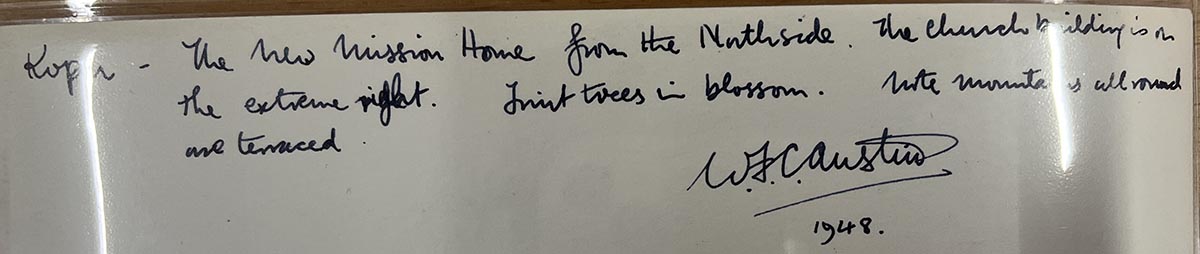 Kopu - The New Mission Home from the Northside. The Church building is on
the extreme right. Fruit trees in blossom. Note mountains all round
are terraced.
W.F.C. Austin
1948.